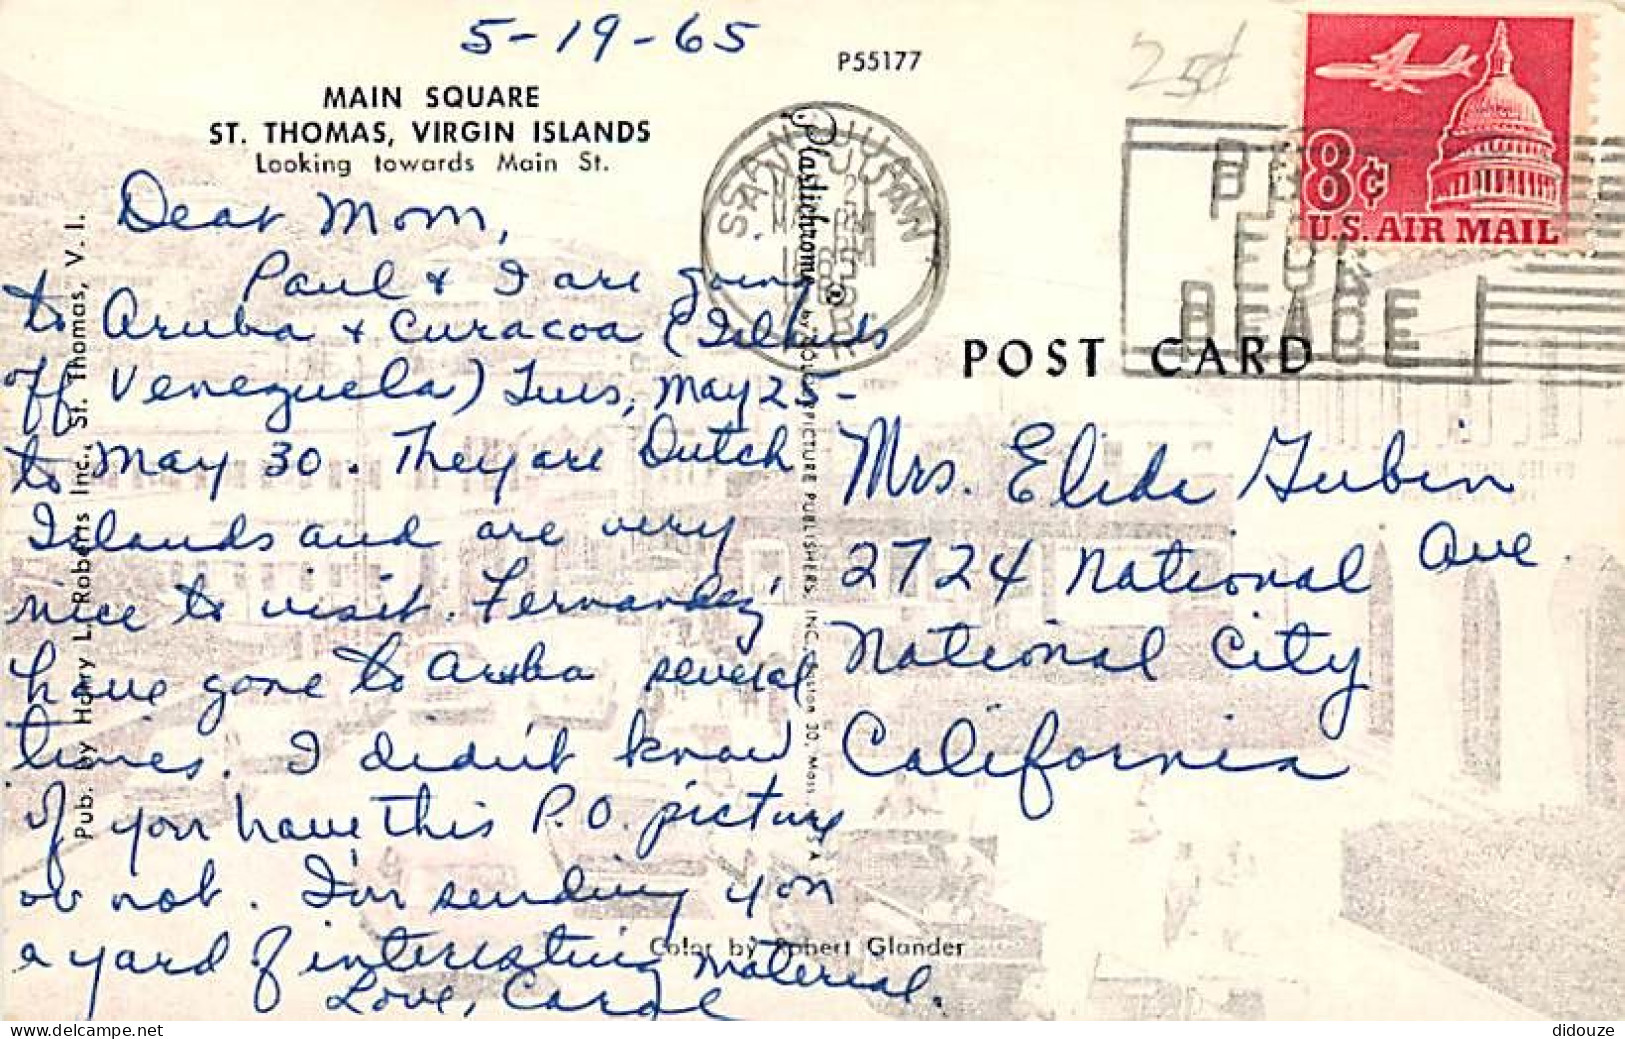 5-19-65
P55177
25¢
MAIN SQUARE
ST. THOMAS, VIRGIN ISLANDS
Looking towards Main St.
8¢
U.S. AIR MAIL
SAN JUAN
PEACE
POST CARD
Dear Mom,
Paul & I are going
to Aruba & Curacoa (Islands
off Venezuela) Tues, May 25-
to May 30. They are Dutch
Islands and are very
nice to visit. Fernandez'
have gone to Aruba several
times. I didn't know
if you have this P.O. picture
or not. I'm sending you
a yard of interesting material.
Love, Carol
Mrs. Elida Gubin
2724 National Ave.
National City
California
Pub. by Harry L. Roberts Inc., St. Thomas, V. I.
Plastichrome ® by COLOURPICTURE PUBLISHERS, INC., Boston 30, Mass., U.S.A.
Color by Robert Glander
didouze